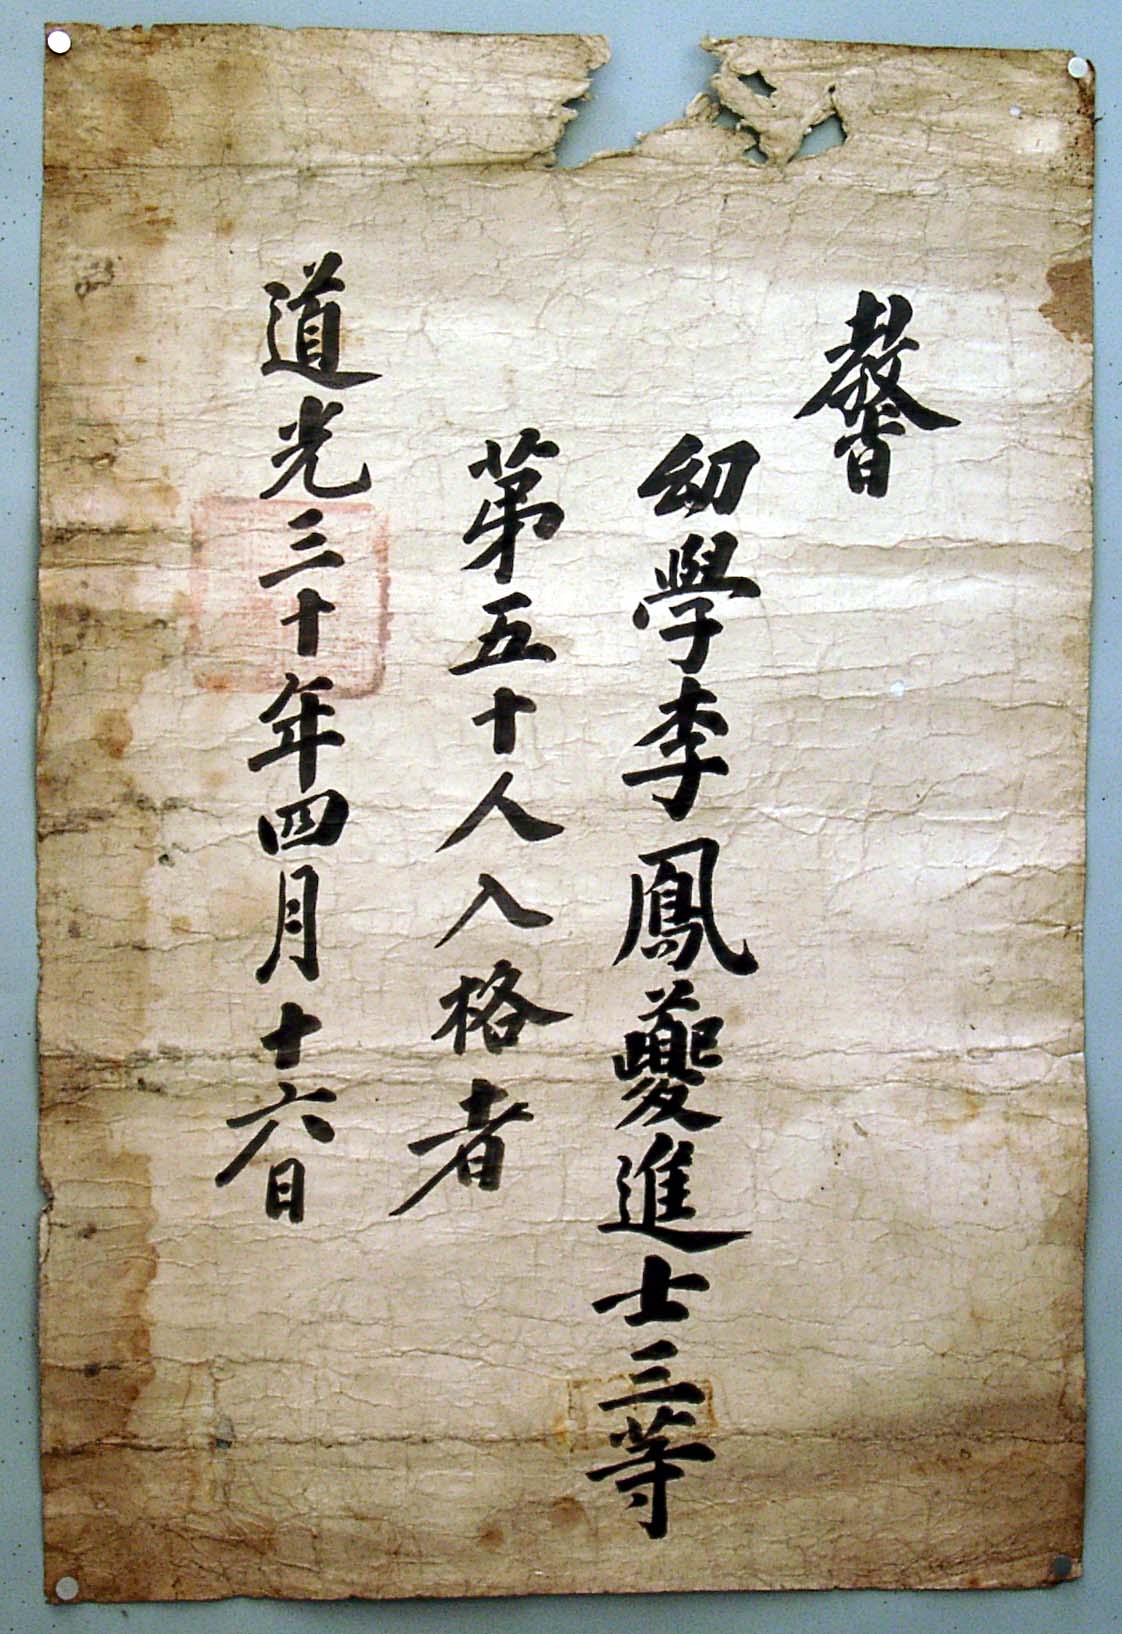 教旨
幼學李鳳夔進士三等
第五十人入格者
道光三十年四月十六日